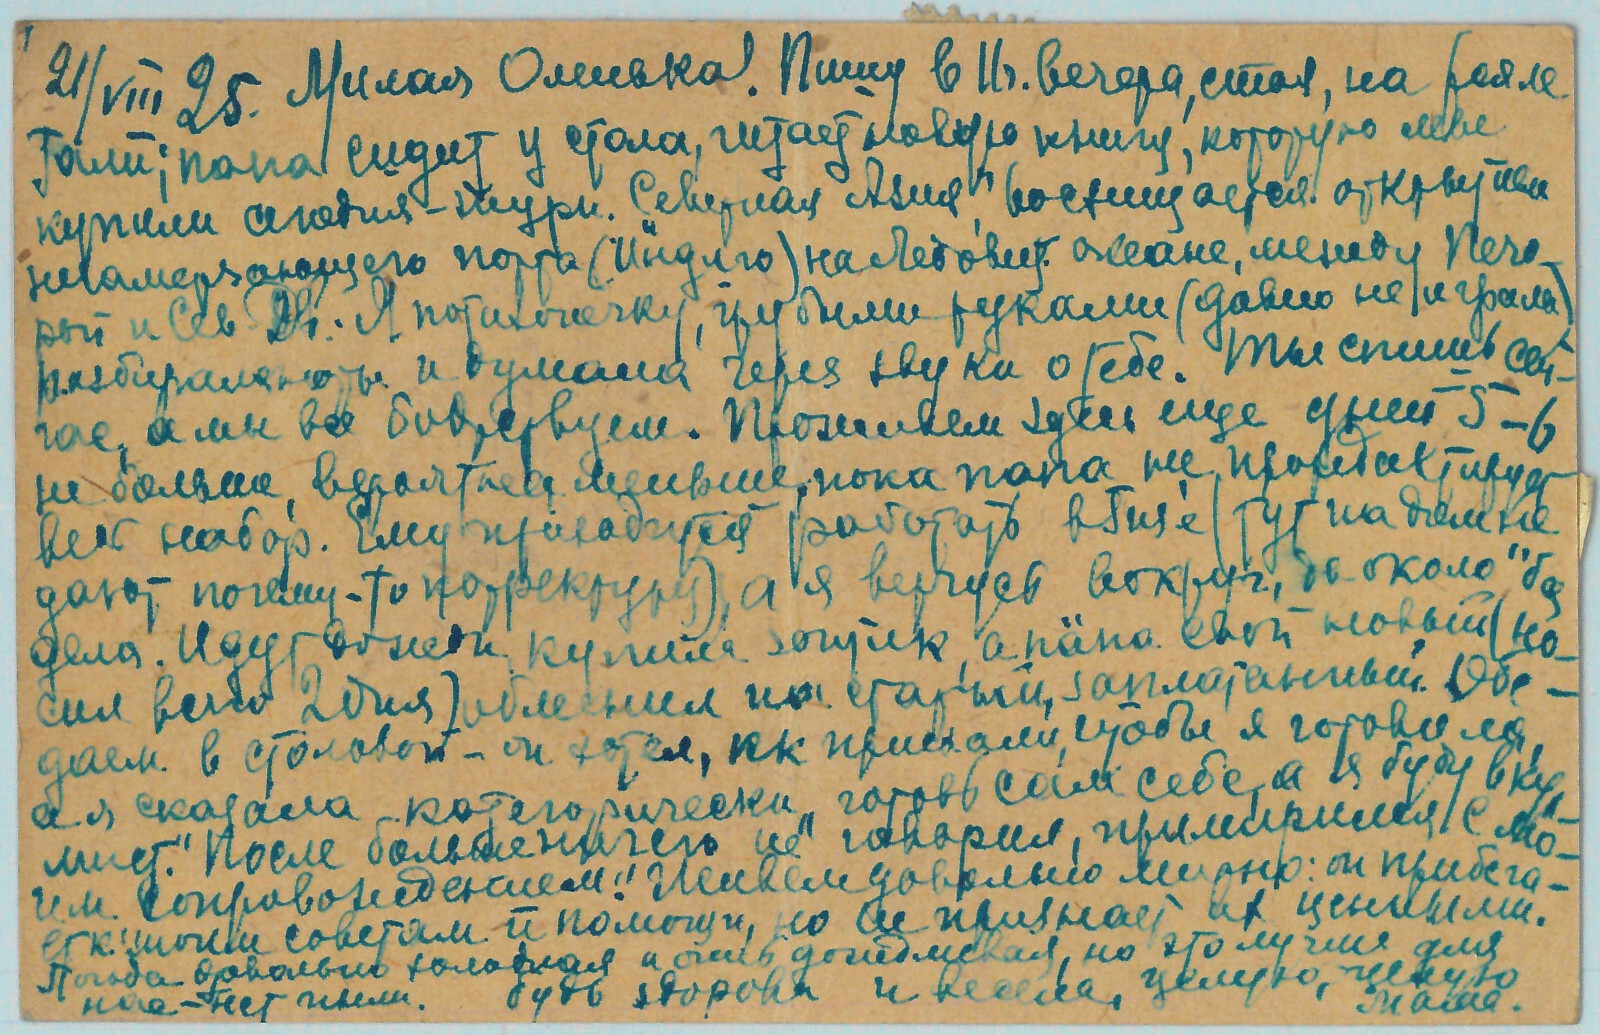 21/VIII 25. Милая Оленька! Пишу в 11 ч. вечера, стоя, на рояле
Гали; папа сидит у стола, читает новую книгу, которую мы
купили сегодня - журн. "Северная Азия", восхищается открытием
незамерзающего порта (Индиго) на Ледовит. океане, между Печо-
рой и Сев Дв. Я потихонечку, грубыми руками (давно не играла)
разбирала ноты и думала через звуки о тебе. Ты спишь сей-
час, а мы всё бодрствуем. Проживем здесь еще дней 5-6
не больше, вероятнее меньше, пока папа не
весь набор. Ему приходится работать в (тут на дом не
дают почему-то корректуру), а я верчусь вокруг, да около "без
дела. Идут дожди, купила зонтик, а папа свой новый (но-
сил всего 2 дня) обменил на старый, заплатанный. Обе-
даем в столовой - он хотел, как приехали, чтобы я готовила,
а я сказала категорически "готовь сам себе, а я буду вку-
После больше ничего не говорил, примирился с мо-
им "сопровождением"! Живем довольно мирно: он прибега-
ет к моим советам и помощи, но не признает их ценными.
Погода довольно холодная и очень дождливая, но это лучше для
нас - нет пыли. Будь здорова и весела, целую, целую
Мама.